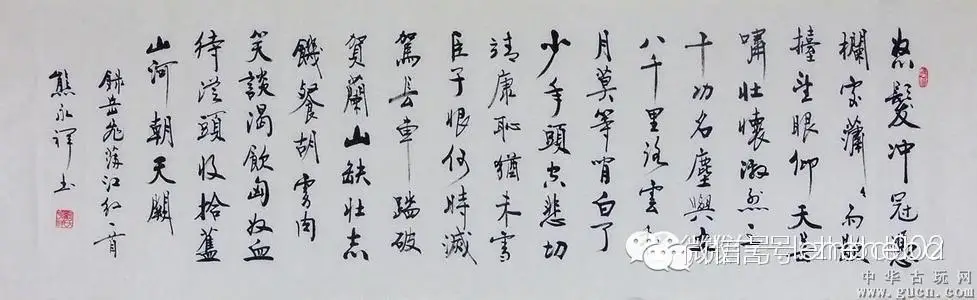 怒髮冲冠憑
欄處瀟瀟雨歇
擡望眼仰天長
嘯壯懷激烈三
十功名塵與土
八千里路雲和
月莫等閒白了
少年頭空悲切
靖康恥猶未雪
臣子恨何時滅
駕長車踏破
賀蘭山缺壯志
饑餐胡虜肉
笑談渴飲匈奴血
待從頭收拾舊
山河朝天闕
錄岳飛滿江紅一首
熊永
微信号
中华古玩网
www.gucn.com